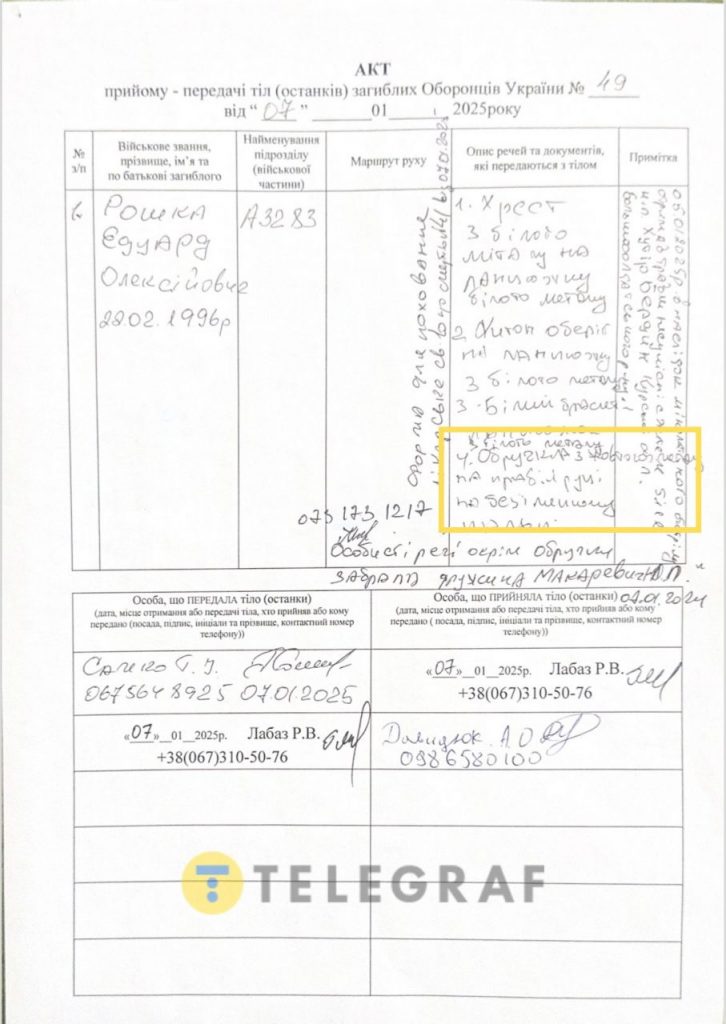 АКТ
прийому - передачі тіл (останків) загиблих Оборонців України № 49
від “ 07 ” 01 2025року
№ з/п
Військове звання, прізвище, ім’я та по батькові загиблого
Найменування підрозділу (військової частини)
Маршрут руху
Опис речей та документів, які передаються з тілом
Примітка
Рошка
Едуард
Олексійович
22.02.1996р
А3283
Форма для поховання
1. Хрест
з білого
металу на
ланцюжку
білого металу
2.
оберіг
на ланцюжку
з білого металу
3. Білий
з білого металу
4. Обручка з жовтого металу
на правій руці
на безіменному
пальці
05.01.2025р внаслідок
Курської обл.
073 173 1217
Особисті речі окрім обручки
забрала дружина Макаревич
Особа, що ПЕРЕДАЛА тіло (останки)
(дата, місце отримання або передачі тіла, хто прийняв або кому
передано (посада, підпис, ініціали та прізвище, контактний номер
телефону))
Особа, що ПРИЙНЯЛА тіло (останки)
(дата, місце отримання або передачі тіла, хто прийняв або кому
передано ( посада, підпис, ініціали та прізвище, контактний номер
телефону))
0675648925 07.01.2025
«07»__01__2025р. Лабаз Р.В.
+38(067)310-50-76
«07»__01__2025р. Лабаз Р.В.
+38(067)310-50-76
Давидюк А.О.
0986580100
TELEGRAF